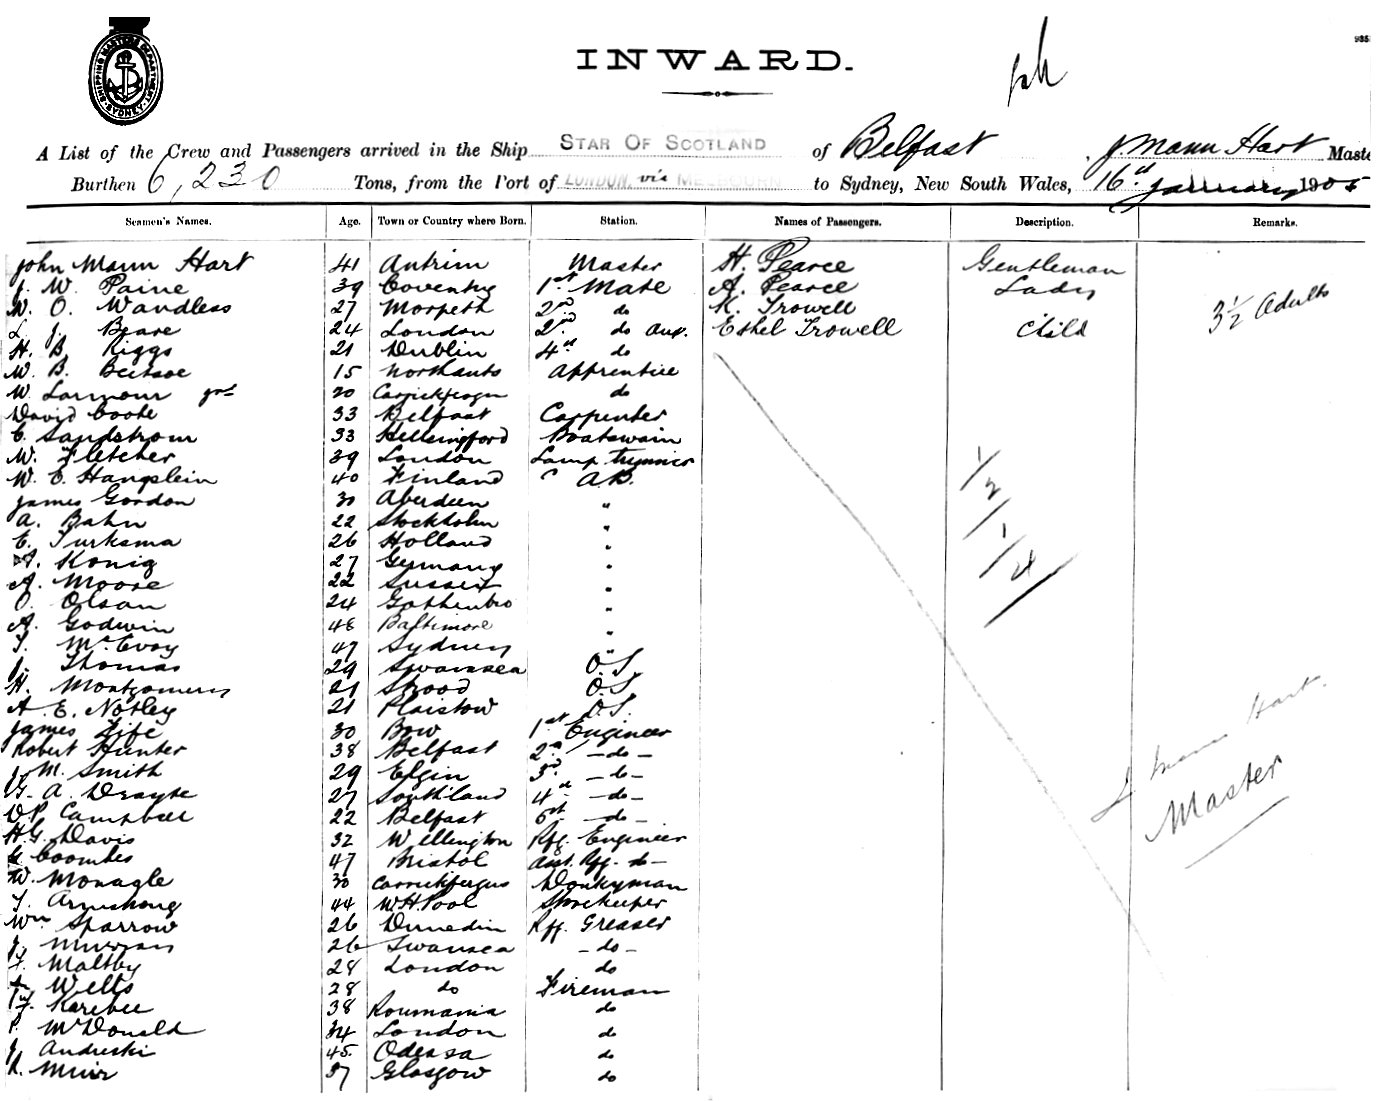 SHIPPING MASTER'S DEPARTMENT SYDNEY
INWARD.
A List of the Crew and Passengers arrived in the Ship STAR OF SCOTLAND of Belfast, J. Mann Hart Maste
Burthen 6,230 Tons, from the Port of LONDON, via MELBOURN to Sydney, New South Wales, 16th January 1905
Seamen's Names. Age. Town or Country where Born. Station. Names of Passengers. Description. Remarks.
John Mann Hart 41 Antrim Master H. Pearce Gentleman
J. W. Paine 39 Coventry 1st Mate A. Pearce Lady
W. O. Wandless 27 Morpeth 2nd do K. Trowell 3½ Adults
L. J. Beare 24 London 2nd do aux. Ethel Trowell Child
H. B. Riggs 21 Dublin 4th do
W. B. 15 Northants Apprentice
W. Larmour jnr 20 Carrickfergus do
David Coote 33 Belfast Carpenter
E. Sandstrom 33 Hellsingford Boatswain
W. Fletcher 39 London Lamp trimmer
W. E. Hangslein 40 Finland A.B.
James Gordon 30 Aberdeen "
A. Bahn 22 Stockholm "
E. Turksma 26 Holland "
A. Konig 27 Germany "
A. Moore 22 Sussex "
O. Olsan 24 Gothenbro "
A. Godwin 48 Baltimore "
T. McEvoy 47 Sydney "
J. Thomas 29 Swansea O.S.
H. Montgomery 21 Strood O.S.
A. E. Notley 21 Plaistow O.S.
James Fife 30 Bow 1st Engineer
Robert Hunter 38 Belfast 2nd -do-
J. M. Smith 29 Elgin 3rd -do-
G. A. Drayte 27 Southland 4th -do-
D P. Campbell 22 Belfast -do-
H. G. Davis 32 Wellington Rfg. Engineer
G. Coombes 47 Bristol Asst. Rfg. do-
W. Monagle 30 Carrickfergus Donkyman
T. Armstrong 44 W H Pool Storekeeper
Wm Sparrow 26 Dunedin Rfg. Greaser
J. 26 Swansea -do-
F. Maltby 28 London do
Wells 28 do Fireman
F. Karebee 38 Roumania do
P. McDonald 34 London do
J. Andreski 45 Odessa do
R. Muir 37 Glasgow do
1/2/-/4
J Mann Hart.
Master